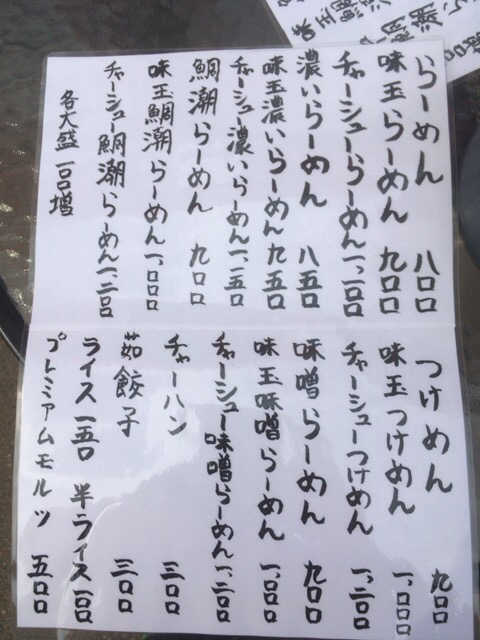 らーめん 八〇〇
味玉らーめん 九〇〇
チャーシューらーめん 一、一〇〇
濃いらーめん 八五〇
味玉濃いらーめん 九五〇
チャーシュー濃いらーめん 一、一五〇
鯛潮らーめん 九〇〇
味玉鯛潮らーめん 一、〇〇〇
チャーシュー鯛潮らーめん 一、二〇〇
各大盛 一〇〇増
つけめん 九〇〇
味玉つけめん 一、〇〇〇
チャーシューつけめん 一、二〇〇
味噌らーめん 九〇〇
味玉味噌らーめん 一、〇〇〇
チャーシュー味噌らーめん 一、二〇〇
チャーハン 三〇〇
茹餃子 三〇〇
ライス 一五〇 半ライス 一〇〇
プレミアムモルツ 五〇〇